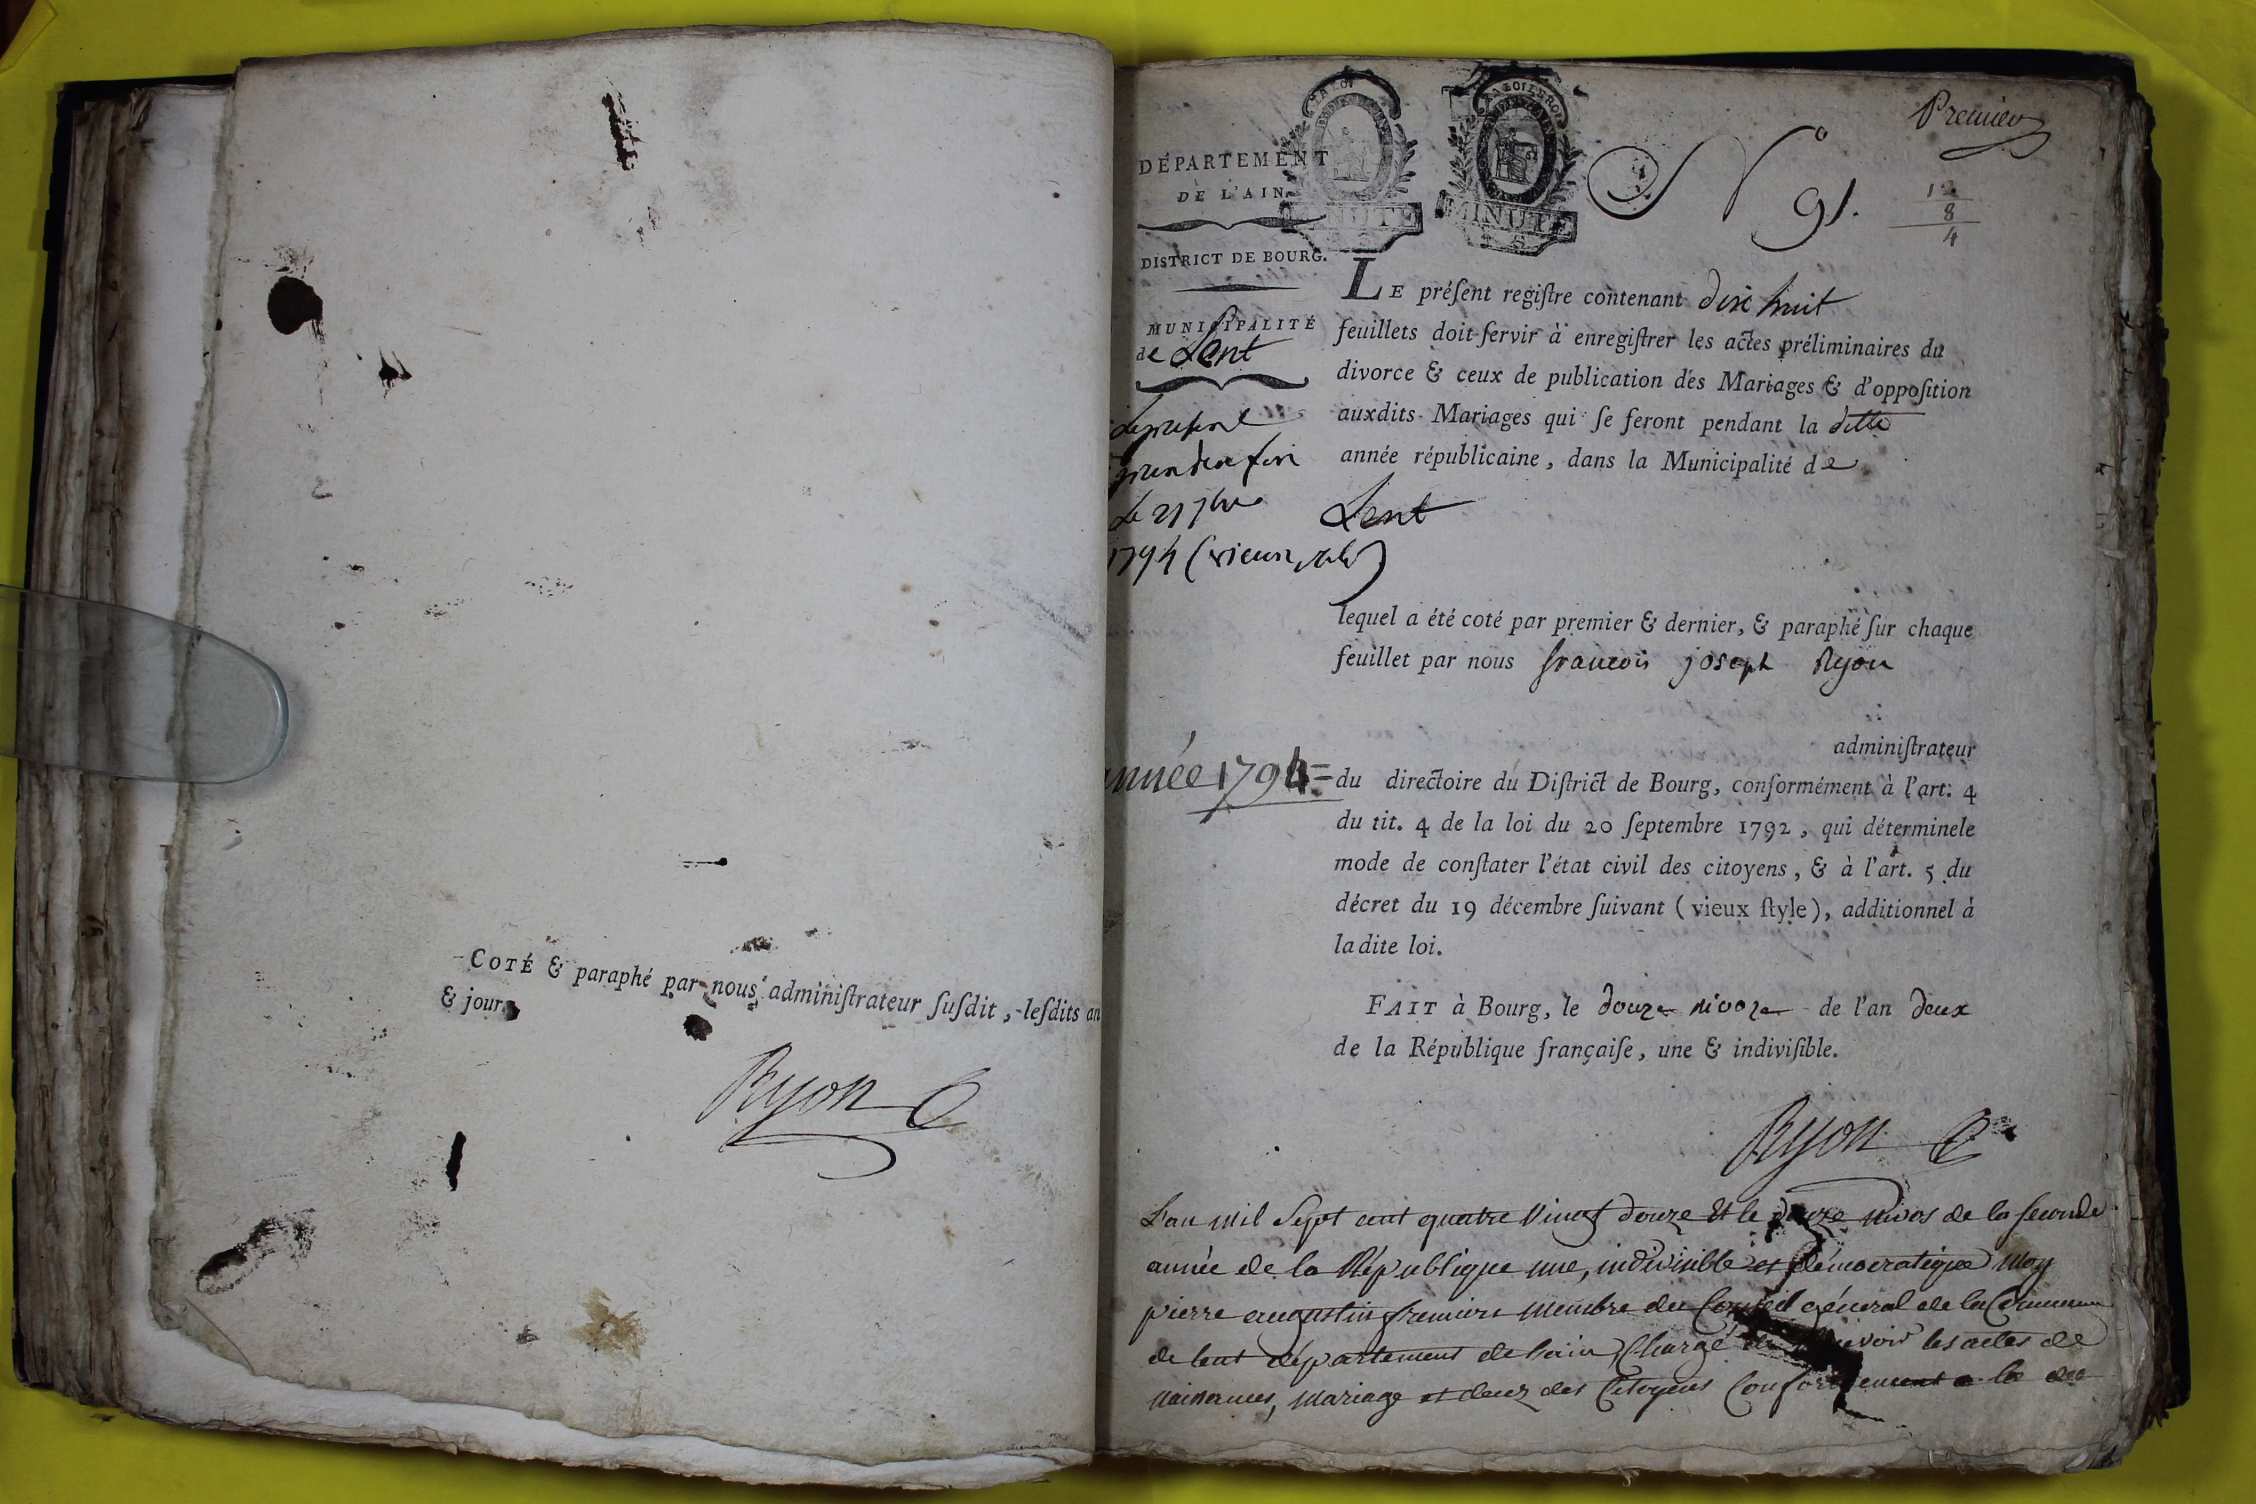 COTÉ & paraphé par nous administrateur susdit, lesdits an
& jour
Ryon
Premier
LA LOI
LA LOI LE ROI
MINUTE
MINUTE
N° 91.
12
8
4
DÉPARTEMENT
DE L'AIN
DISTRICT DE BOURG.
MUNICIPALITÉ
de Lent
Le present
fini
Le 21 7bre
1794 (vieux stile)
année 1794 =
LE préſent regiſtre contenant dix huit
feuillets doit ſervir à enregiſtrer les actes préliminaires du
divorce & ceux de publication des Mariages & d'oppoſition
auxdits Mariages qui ſe feront pendant la ditte
année républicaine, dans la Municipalité de
Lent
lequel a été coté par premier & dernier, & paraphé ſur chaque
feuillet par nous francois joseph Ryon
adminiſtrateur
du directoire du Diſtrict de Bourg, conformément à l'art. 4
du tit. 4 de la loi du 20 ſeptembre 1792, qui détermine le
mode de conſtater l'état civil des citoyens, & à l'art. 5 du
décret du 19 décembre ſuivant (vieux ſtyle), additionnel à
ladite loi.
FAIT à Bourg, le douze nivoze de l'an deux
de la République françaiſe, une & indiviſible.
Ryon
L'an mil Sept cent quatre Vingt douze et le douze nivos de la seconde
année de la République une, indivisible et démocratique Moy
pierre augustin membre du Conseil général de la Commune
de lent département de l'ain, Chargé de recevoir les actes de
naissances, Mariage et decez des Citoyens Conformement a la